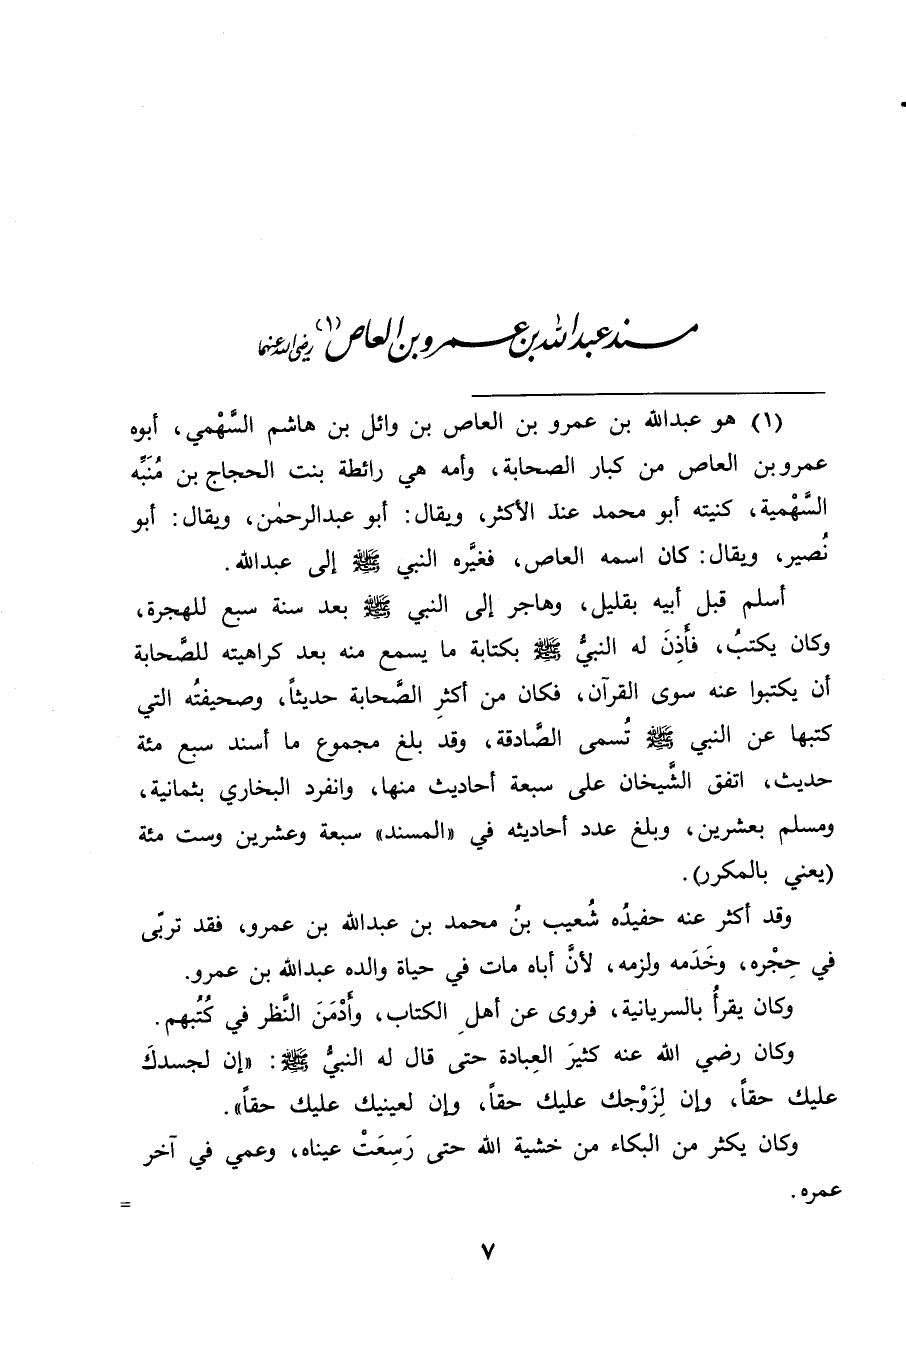 مسند عبد الله بن عمرو بن العاص (١) رضي الله عنهما
(١) هو عبدالله بن عمرو بن العاص بن وائل بن هاشم السَّهْمي، أبوه
عمرو بن العاص من كبار الصحابة، وأمه هي رائطة بنت الحجاج بن مُنَبِّه
السَّهْمية، كنيته أبو محمد عند الأكثر، ويقال: أبو عبدالرحمٰن، ويقال: أبو
نُصير، ويقال: كان اسمه العاص، فغيَّره النبي ﷺ إلى عبدالله.
أسلم قبل أبيه بقليل، وهاجر إلى النبي ﷺ بعد سنة سبع للهجرة،
وكان يكتبُ، فأَذِنَ له النبيُّ ﷺ بكتابة ما يسمع منه بعد كراهيته للصَّحابة
أن يكتبوا عنه سوى القرآن، فكان من أكثرِ الصَّحابة حديثاً، وصحيفتُه التي
كتبها عن النبي ﷺ تُسمى الصَّادقة، وقد بلغ مجموع ما أسند سبع مئة
حديث، اتفق الشَّيخان على سبعة أحاديث منها، وانفرد البخاري بثمانية،
ومسلم بعشرين، وبلغ عدد أحاديثه في «المسند» سبعة وعشرين وست مئة
(يعني بالمكرر).
وقد أكثر عنه حفيدُه شُعيب بنُ محمد بن عبدالله بن عمرو، فقد تربّى
في حِجْره، وخَدَمه ولزمه، لأنَّ أباه مات في حياة والده عبدالله بن عمرو.
وكان يقرأُ بالسريانية، فروى عن أهلِ الكتاب، وأَدْمَنَ النَّظر في كُتُبهم.
وكان رضي الله عنه كثيرَ العِبادة حتى قال له النبيُّ ﷺ: «إن لجسدكَ
عليك حقاً، وإن لِزَوْجك عليك حقاً، وإن لعينيك عليك حقاً».
وكان يكثر من البكاء من خشية الله حتى رَسِعَتْ عيناه، وعمي في آخر
عمره.
=
٧